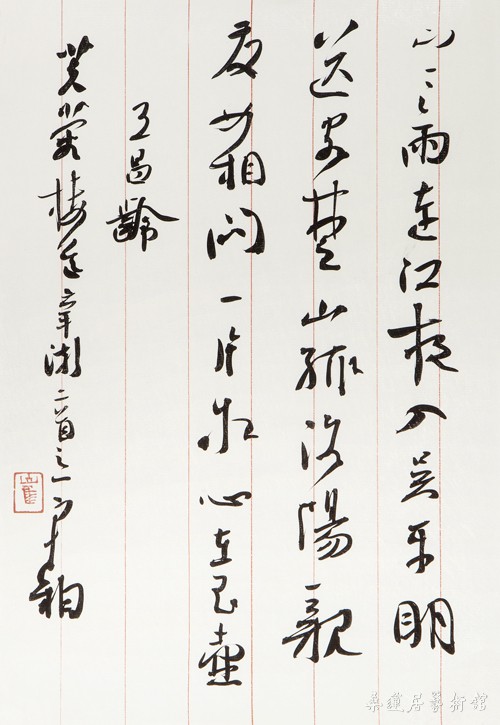 寒雨連江夜入吳平明
送客楚山孤洛陽親
友如相問一片冰心在玉壺
王昌齡
芙蓉樓送辛漸二首之一
蓮居藝術館